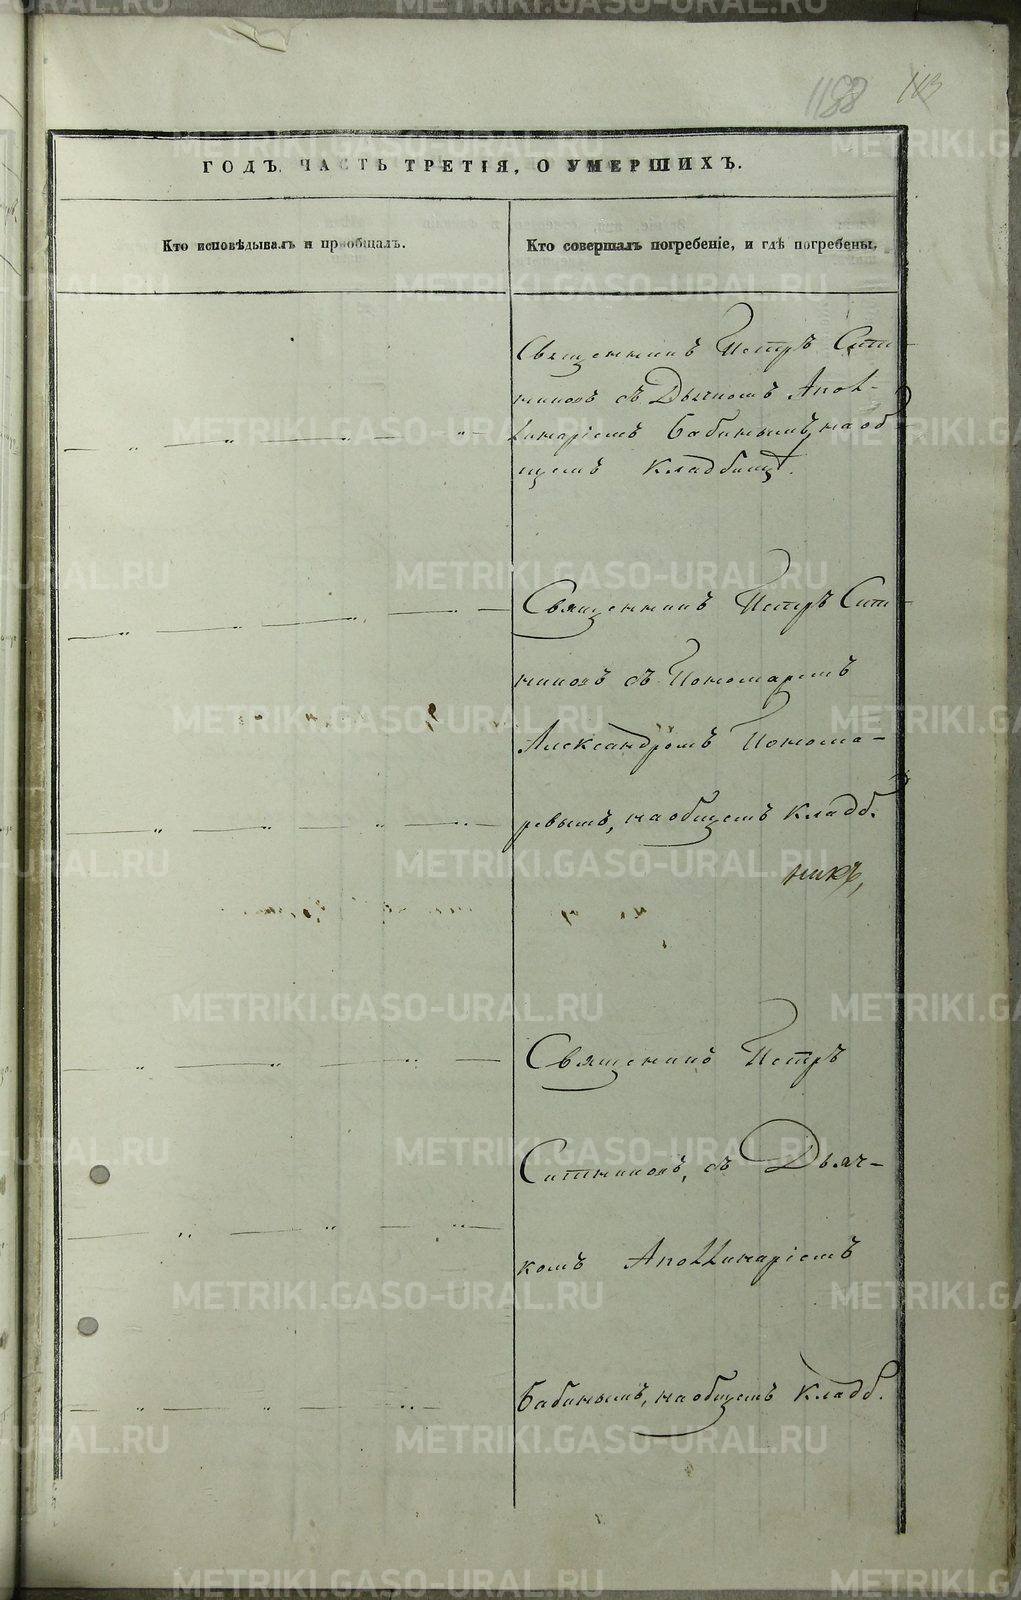 1188 113
ГОДЪ, ЧАСТЬ ТРЕТІЯ, О УМЕРШИХЪ.
Кто исповѣдывалъ и пріобщалъ.
Кто совершалъ погребеніе, и гдѣ погребены.
Священникъ Петръ Сит-
никовъ съ Дьячкомъ Апол-
линаріемъ Бабинымъ, на об
щемъ кладбищѣ.
Священникъ Петръ Сит-
никовъ съ Пономаремъ
Александромъ Понома-
ревымъ, на общемъ кладб.
Священикъ Петръ
Ситниковъ, съ Дьяч-
комъ Аполлинаріемъ
Бабинымъ, на общемъ кладб.
METRIKI.GASO-URAL.RU